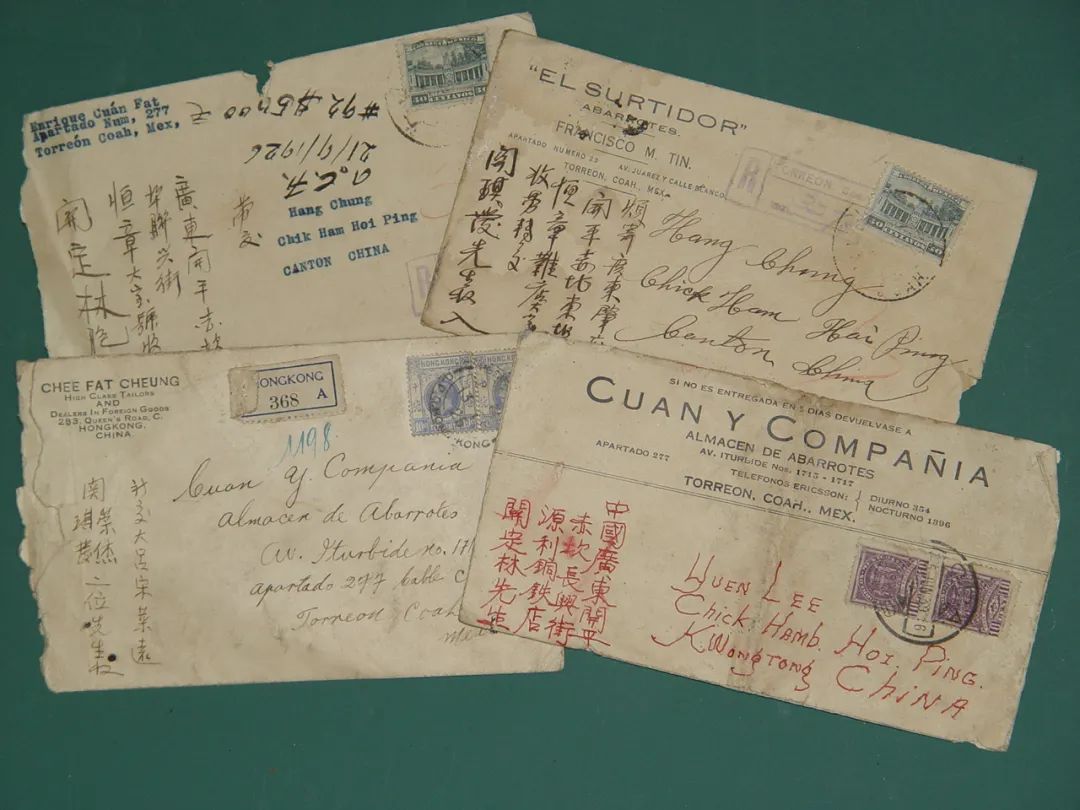 Enrique Cuán Fat
Apartado Num, 277
Torreón Coah, Mex,
#92
21/9/1926
Hang Chung
Chik Ham Hoi Ping
CANTON CHINA
廣東開平赤坎
埠聯兴街
恒章大宝號收
関定林
"EL SURTIDOR"
ABARROTES.
FRANCISCO M. TIN.
APARTADO NUMERO 23 AV. JUAREZ Y CALLE BLANCO
TORREON, COAH., MEX.
R
Hang Chong
Chick Ham Hai Ping
Canton China
煩寄廣東肇
開平赤坎東
恒章
関琪發先生收入
CHEE FAT CHEUNG
HIGH CLASS TAILORS
AND
DEALERS IN FOREIGN GOODS
283, QUEEN'S ROAD, C.
HONGKONG.
CHINA.
ONGKONG
368 A
HONGKONG
1198.
Cuan y Compania
Almacen de Abarrotes
Av. Iturbide no. 171
Apartado 277
Torreon Coah
Mex
関
榮杰
琪發
二位先生收
SI NO ES ENTREGADA EN 5 DIAS DEVUELVASE A
CUAN Y COMPAÑIA
ALMACEN DE ABARROTES
APARTADO 277
AV. ITURBIDE NOS. 1715 - 1717
TELEFONOS ERICSSON: { DIURNO 354
NOCTURNO 1396
TORREON, COAH., MEX.
中國廣東開平
赤坎長興街
源利銅鉄店
關定林先生
YUEN LEE
CHICK HAMB. HOI. PING.
KWONGTONG
CHINA